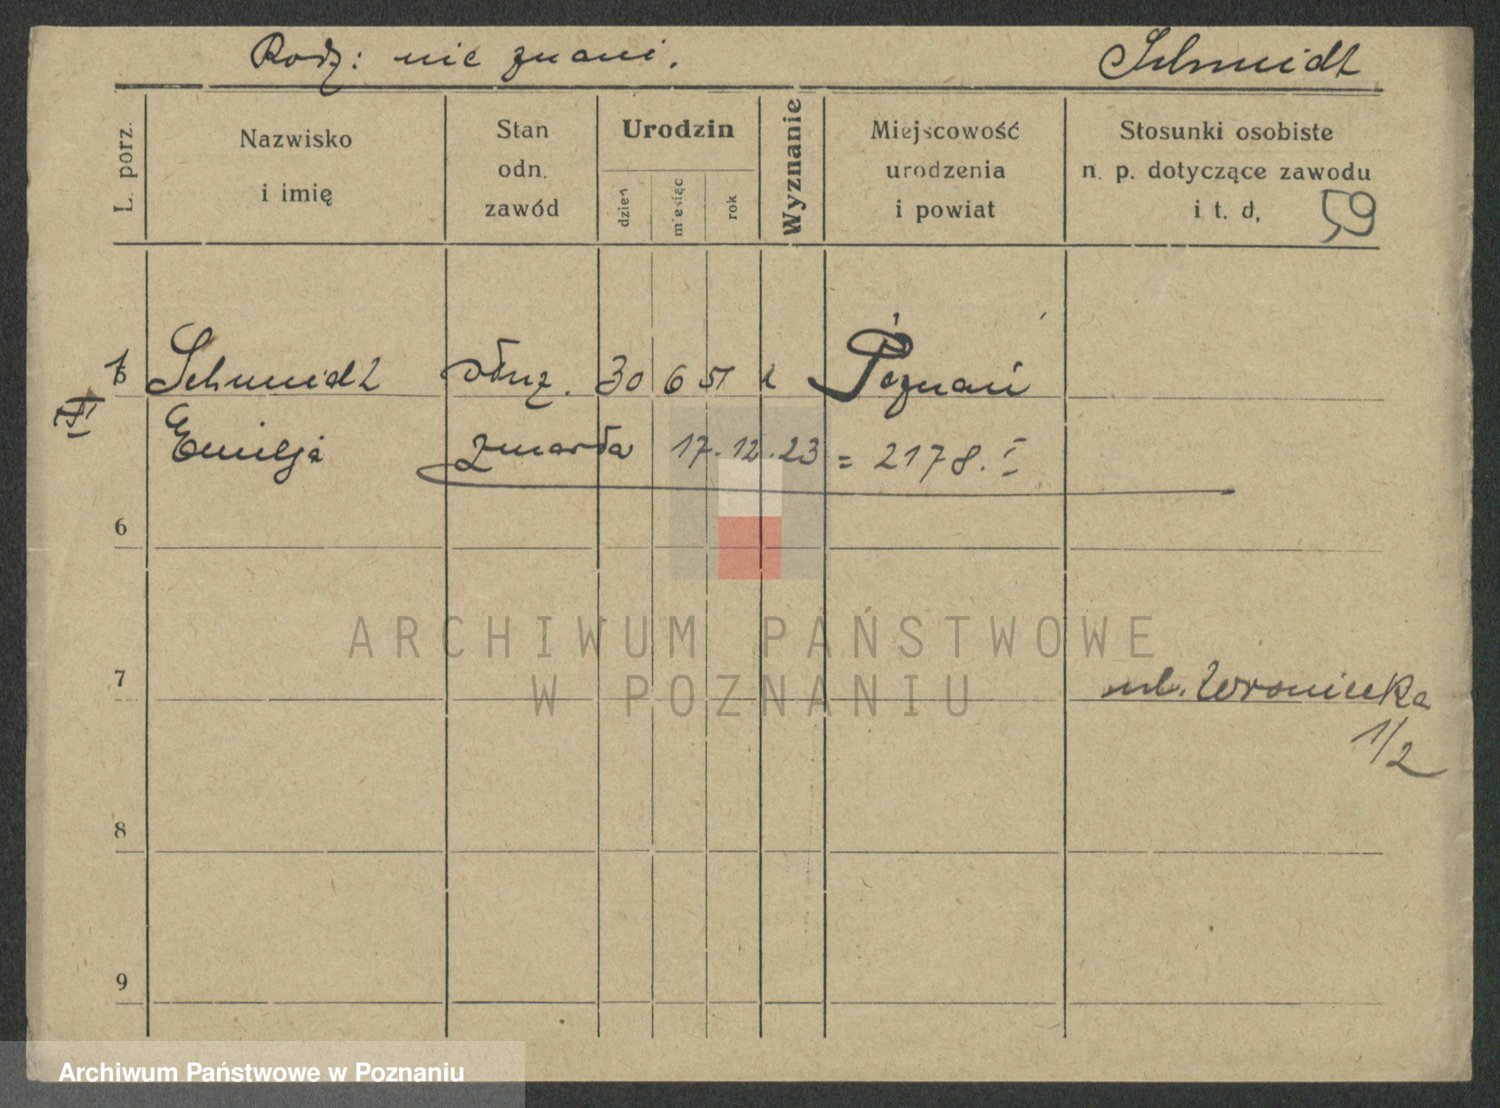 Rodz: nie znani.
Schmidt
L. porz.
Nazwisko
i imię
Stan
odn.
zawód
Urodzin
dzień
miesiąc
rok
Wyznanie
Miejscowość
urodzenia
i powiat
Stosunki osobiste
n. p. dotyczące zawodu
i t. d.
59
Schmidt 30 6 51 Poznań
Emilja zmarła 17.12.23 = 2178. I
6
7
ul. Wroniecka
1/2
8
9
ARCHIWUM PAŃSTWOWE
W POZNANIU
Archiwum Państwowe w Poznaniu